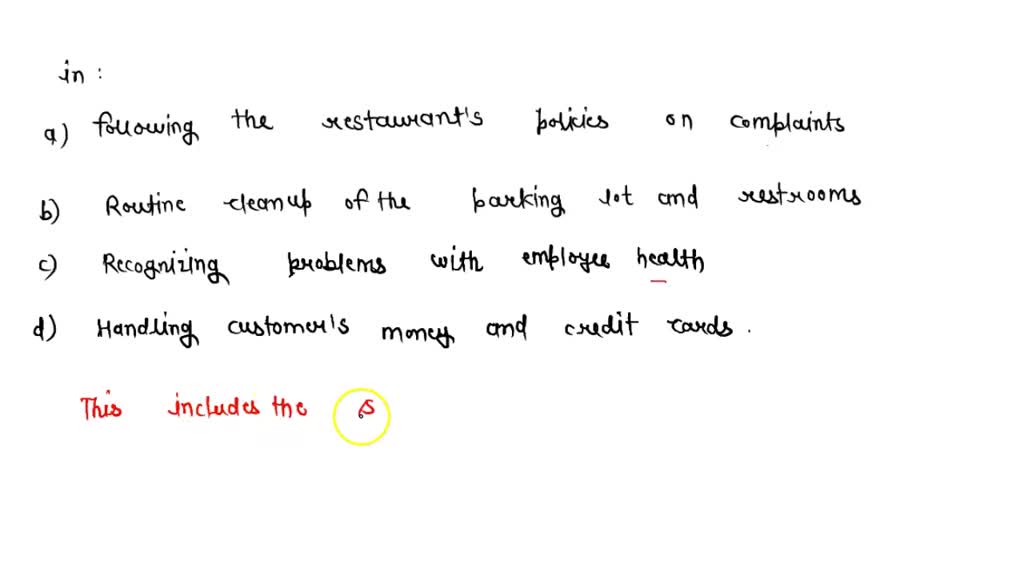 in :
a) following the restaurant's policies on complaints
b) Routine cleanup of the parking lot and restrooms
c) Recognizing problems with employee health
d) Handling customer's money and credit cards .
This includes the s